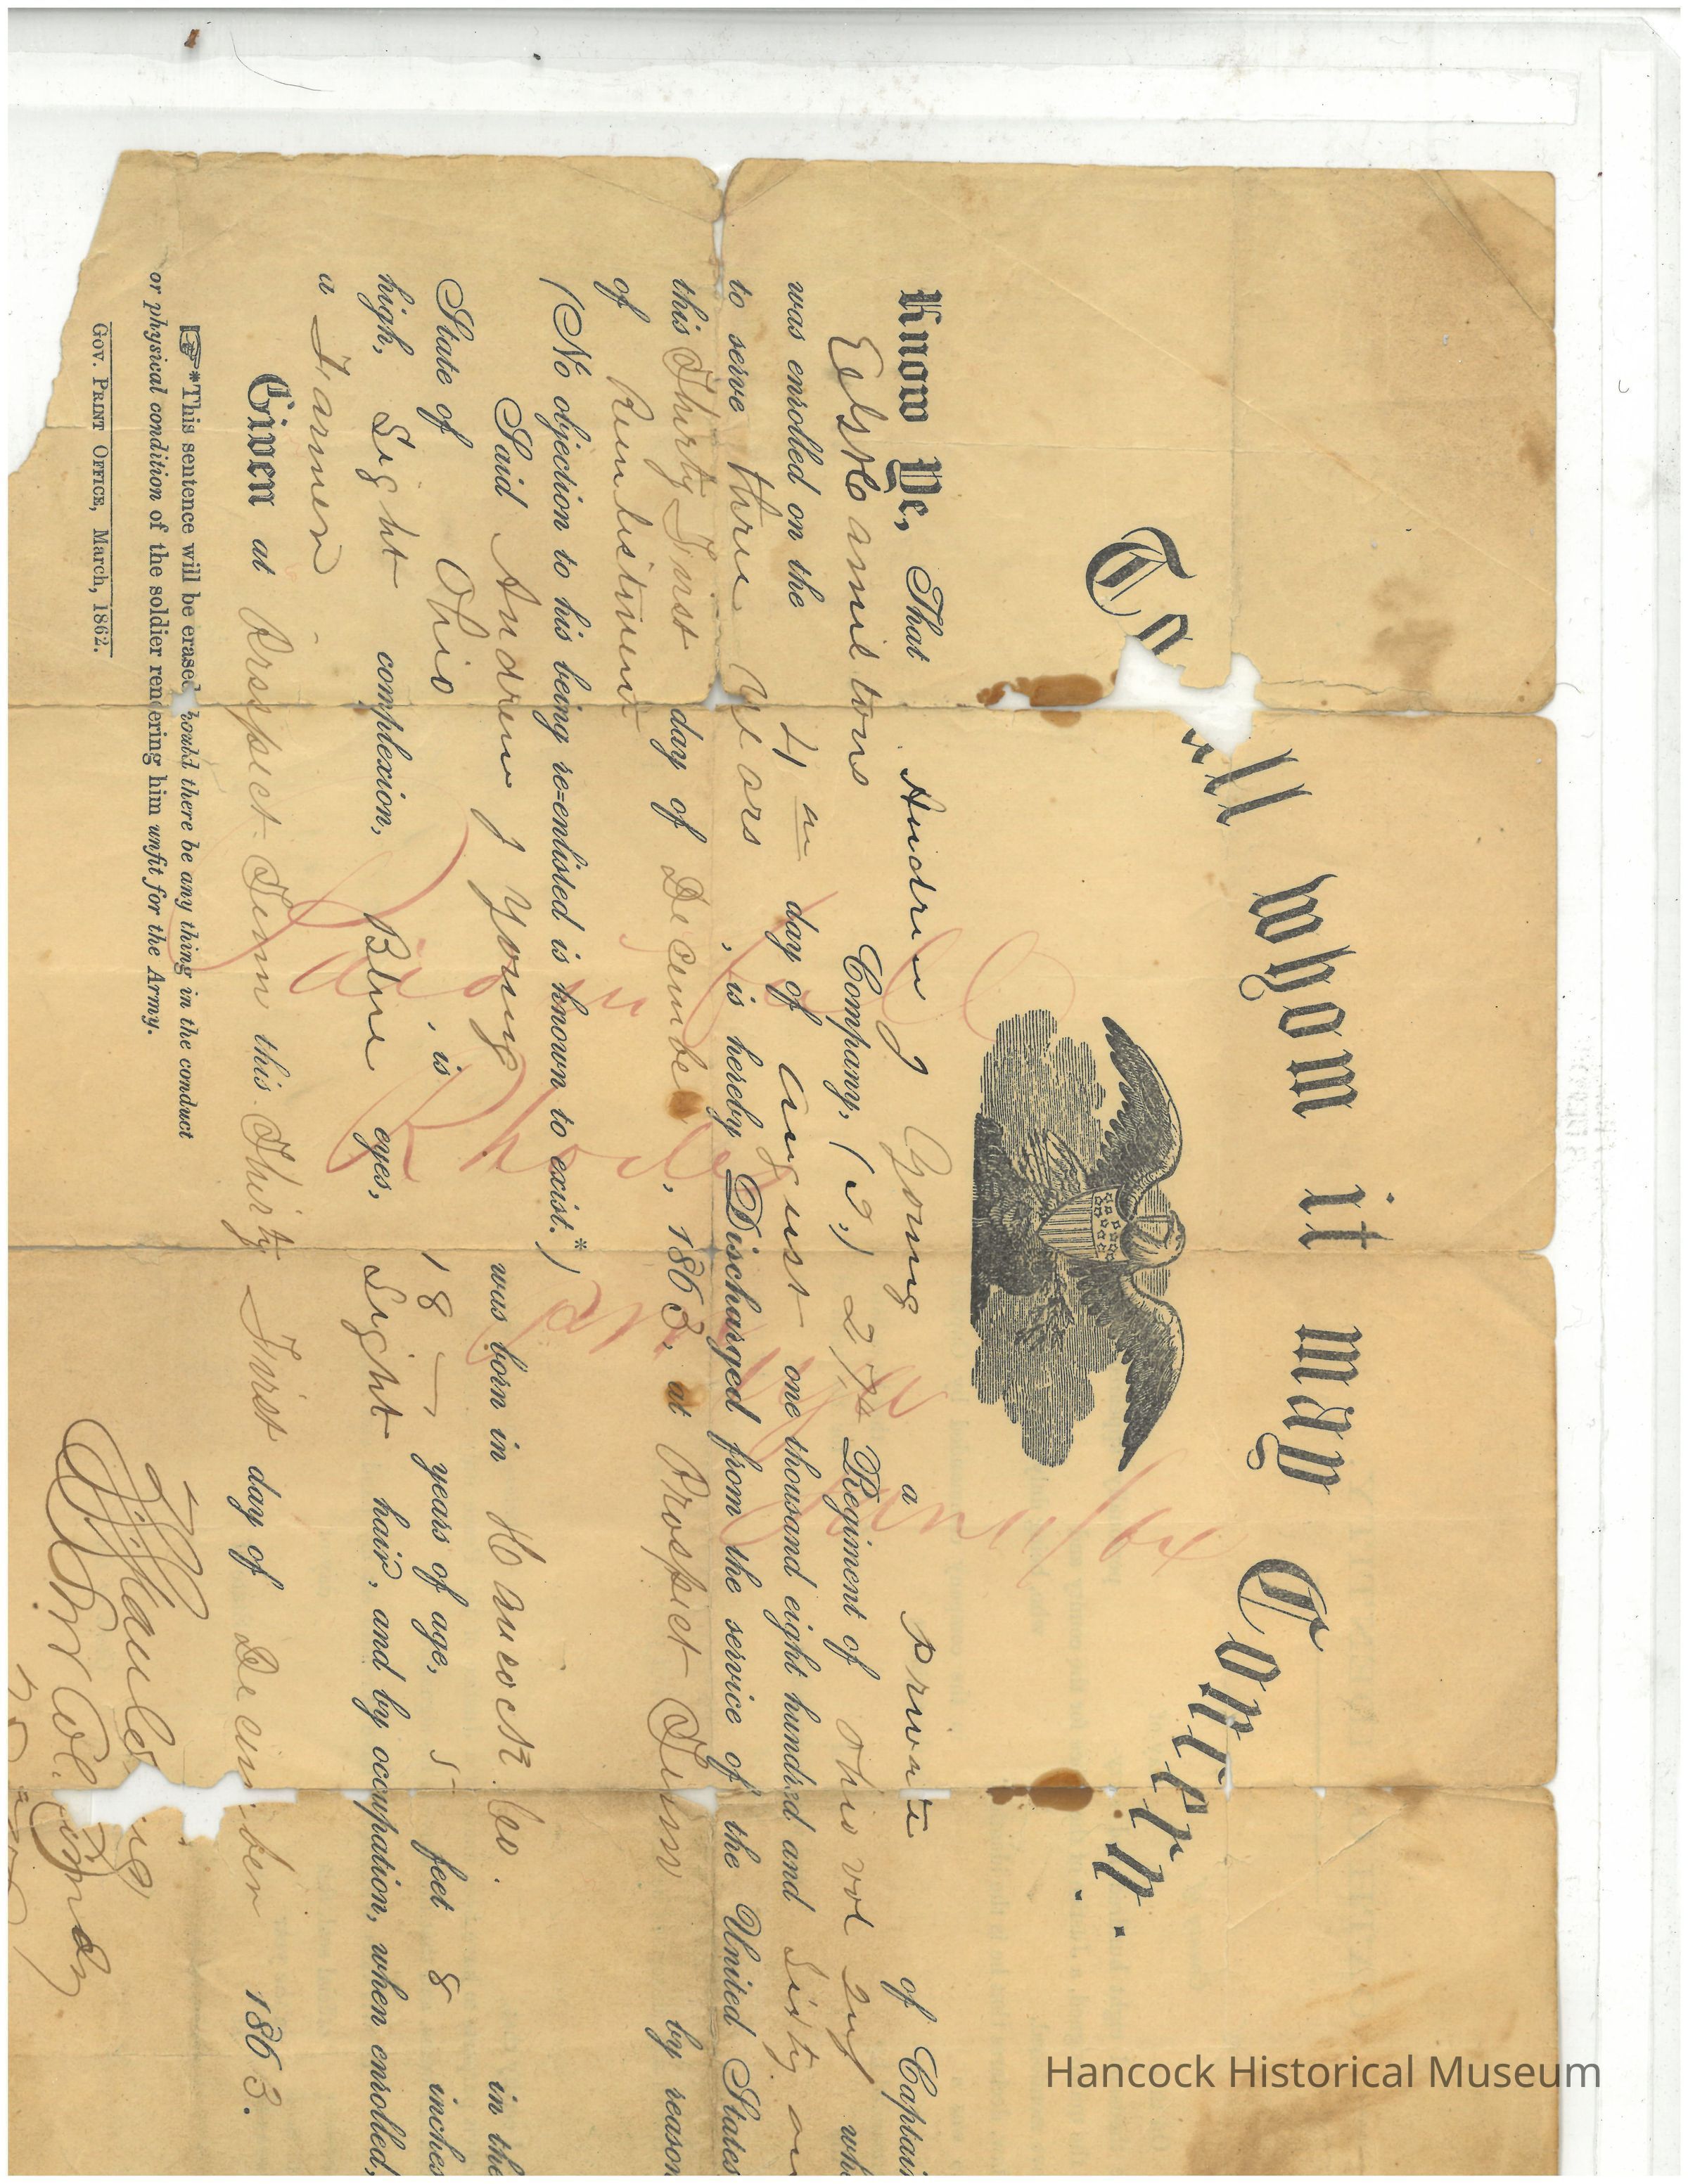 To all whom it may Concern.
Know Ye, That Andrew J Young a private of Captain
Company, ( ) Regiment of Ohio vol Inf who
was enrolled on the 4 day of August one thousand eight hundred and
to serve three years , is hereby Discharged from the service of the United States
this Thirty First day of December, 1863, at Prospect Tenn by reason
of Reenlistment
(No objection to his being re-enlisted is known to exist.*)
Said Andrew J Young was born in Hancock Co. in the
State of Ohio , is 18 years of age, 5 feet 8 inches
high, Light complexion, Blue eyes, Light hair, and by occupation, when enrolled,
a Farmer
Given at Prospect Tenn this Thirty First day of December 1863.
*This sentence will be erased hould there be any thing in the conduct
or physical condition of the soldier rendering him unfit for the Army.
Gov. Print Office, March, 1862.
Paid in full
Rhodes
PM
Hancock Historical Museum